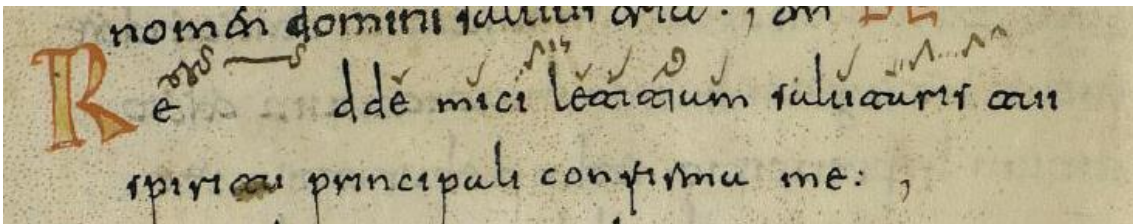 nomen domini saluus erit :,
Redde mici letitiam salutaris tui
spiritu principali confirma me :,